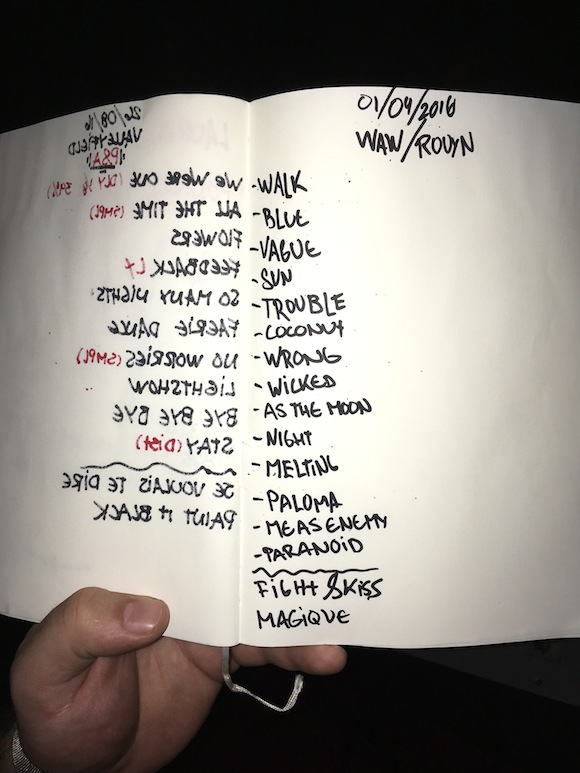 26/08/16
VALLEYFIELD
"PSA"
WE WERE ONE (DLY
ALL THE TIME (SMPL)
FLOWERS
FEEDBACK
SO MANY NIGHTS
FAERIE DANCE
NO WORRIES (SMPL)
LIGHTSHOW
BYE BYE BYE
STAY (DIST)
JE VOULAIS TE DIRE
PAINT IT BLACK
01/09/2016
WAW/ROUYN
-WALK
-BLUE
-VAGUE
-SUN
-TROUBLE
-COCONUT
-WRONG
-WICKED
-AS THE MOON
-NIGHT
-MELTING
-PALOMA
-MEASENEMY
-PARANOID
FIGHT & KISS
MAGIQUE